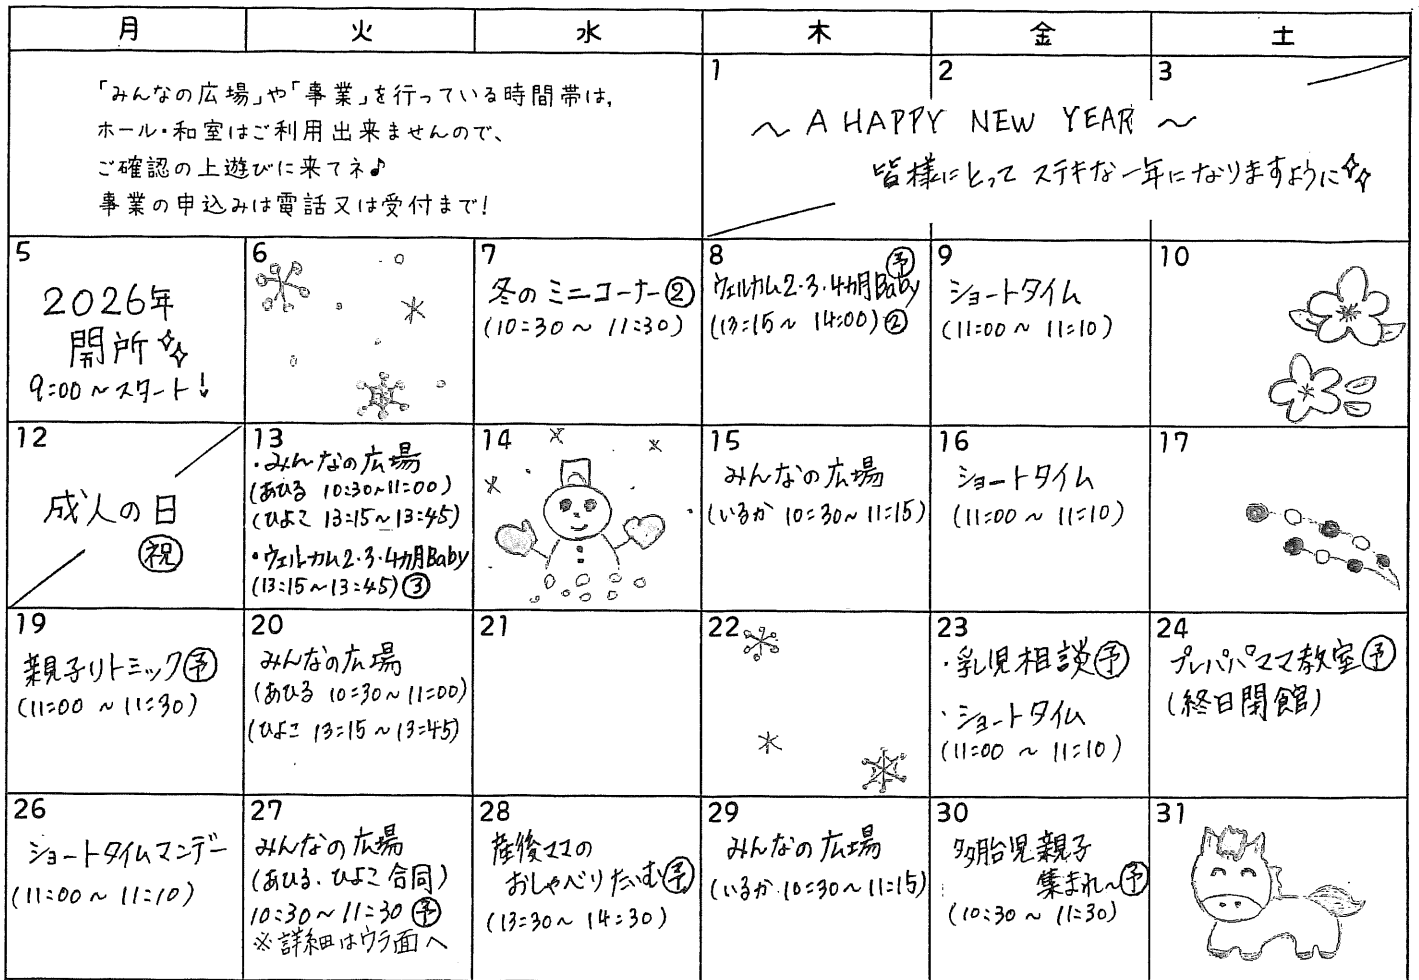 月 火 水 木 金 土
「みんなの広場」や「事業」を行っている時間帯は,
ホール・和室はご利用出来ませんので、
ご確認の上遊びに来てネ♪
事業の申込みは電話又は受付まで!
1 2 3
～ A HAPPY NEW YEAR ～
皆様にとって ステキな一年になりますように
5
2026年
開所
9:00～スタート!
6
7
冬のミニコーナー②
(10:30～ 11:30)
8
予
ウェルカム2・3・4ヵ月Baby
(13:15～ 14:00)②
9
ショートタイム
(11:00～ 11:10)
10
12
成人の日
祝
13
・みんなの広場
(あひる 10:30～11:00)
(ひよこ 13:15～13:45)
・ウェルカム2・3・4ヵ月Baby
(13:15～13:45)③
14
15
みんなの広場
(いるか 10:30～11:15)
16
ショートタイム
(11:00～ 11:10)
17
19
親子リトミック予
(11:00 ～11:30)
20
みんなの広場
(あひる 10:30～11:00)
(ひよこ 13:15～13:45)
21
22
23
・乳児相談予
・ショートタイム
(11:00 ～ 11:10)
24
プレパパママ教室予
(終日閉館)
26
ショートタイムマンデー
(11:00～ 11:10)
27
みんなの広場
(あひる・ひよこ 合同)
10:30～11:30 予
※詳細はウラ面へ
28
産後ママの
おしゃべりたいむ予
(13:30～ 14:30)
29
みんなの広場
(いるか 10:30～11:15)
30
多胎児親子
集まれ～予
(10:30～ 11:30)
31